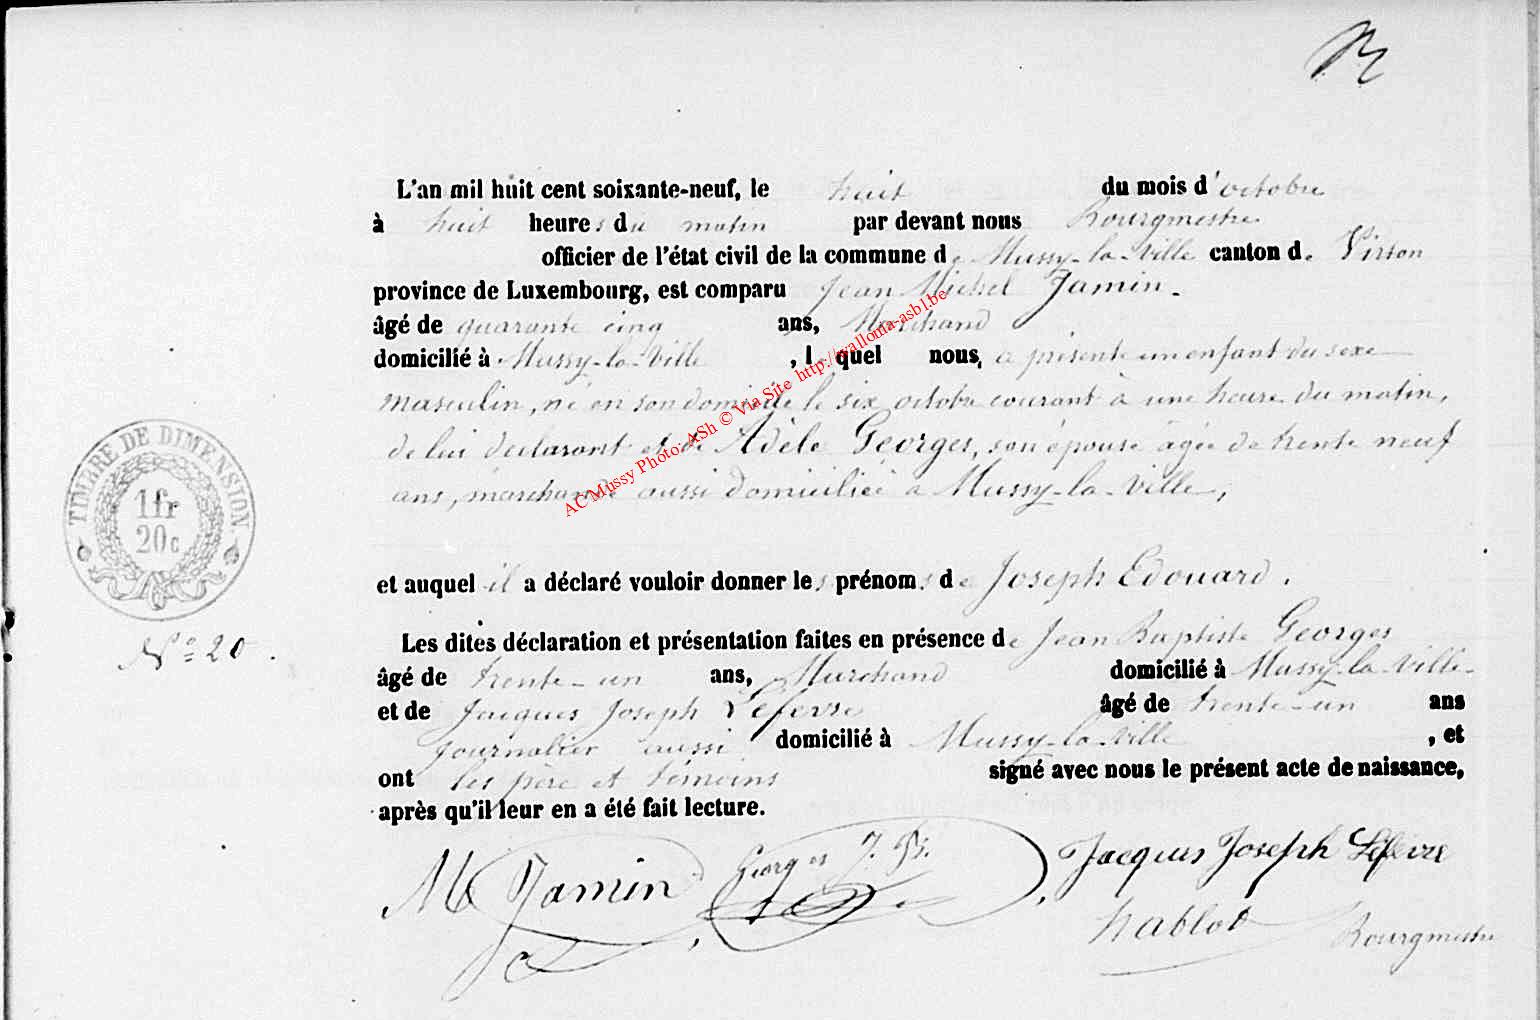 L'an mil huit cent soixante-neuf, le huit du mois d'octobre
à huit heures du matin par devant nous Bourgmestre
officier de l'état civil de la commune de Mussy-la-Ville canton de Virton
province de Luxembourg, est comparu Jean Michel Jamin.
âgé de quarante cinq ans, Marchand
domicilié à Mussy-la-Ville, lequel nous, a présenté un enfant du sexe
masculin, né en son domicile le six octobre courant à une heure du matin,
de lui déclarant et de Adèle Georges, son épouse âgée de trente neuf
ans, marchande aussi domiciliée à Mussy-la-Ville,
et auquel il a déclaré vouloir donner les prénoms de Joseph Edouard.
Les dites déclaration et présentation faites en présence de Jean Baptiste Georges
âgé de trente-un ans, Marchand domicilié à Mussy-la-Ville
et de Jacques Joseph Lefevre âgé de trente-un ans
journalier aussi domicilié à Mussy-la-Ville, et
ont les père et témoins signé avec nous le présent acte de naissance,
après qu'il leur en a été fait lecture.
M Jamin Georges J. Bte. Jacques Joseph Lefevre
hablot Bourgmestre
TIMBRE DE DIMENSION.
1 fr
20 c
N° 20.
AC Mussy Photo: ASh © Via Site http://wallonia-asbl.be